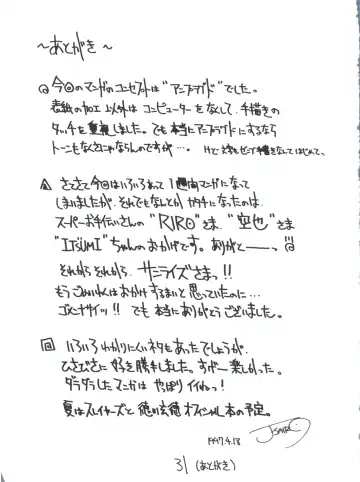 ～あとがき～
@ 今回のマンガのコンセプトは"アンプラグド"でした。
表紙の加工以外はコンピューターをなくして、手描きの
タッチを重視しました。でも本当にアンプラグドにするなら
トーンもなくさにゃならんのですが…。
さてさて今回はいろいろあって1週間マンガになって
しまいましたが、それでもなんとかカタチになったのは、
スーパーお手伝いさんの"RIRO"さま、"空也"さま
"ITSUMI"ちゃんのおかげです。ありがとーーっ!!@
それからそれから、サンライズさまっ!!
もうごめいわくはおかけするまいと思っていたのに…
ゴメンナサイッ!! でも本当にありがとうございました。
回 いろいろわかりにくいネタもあったでしょうが、
ひさびさに好き勝手しました。すげー楽しかった。
ダラダラしたマンガは やっぱりイイねっ!
夏はスレイヤーズと オフィシャル本の予定。
1997.4.18
31 (あとがき)